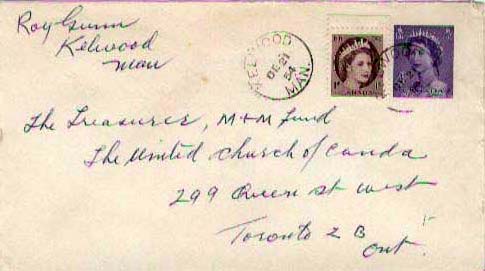 Roy Gunn
Kelwood
Man
KELWOOD
DE 21
54
MAN.
CANADA
The Treasurer, M+M Fund
The United Church of Canda
299 Queen St West
Toronto 2 B
Ont.